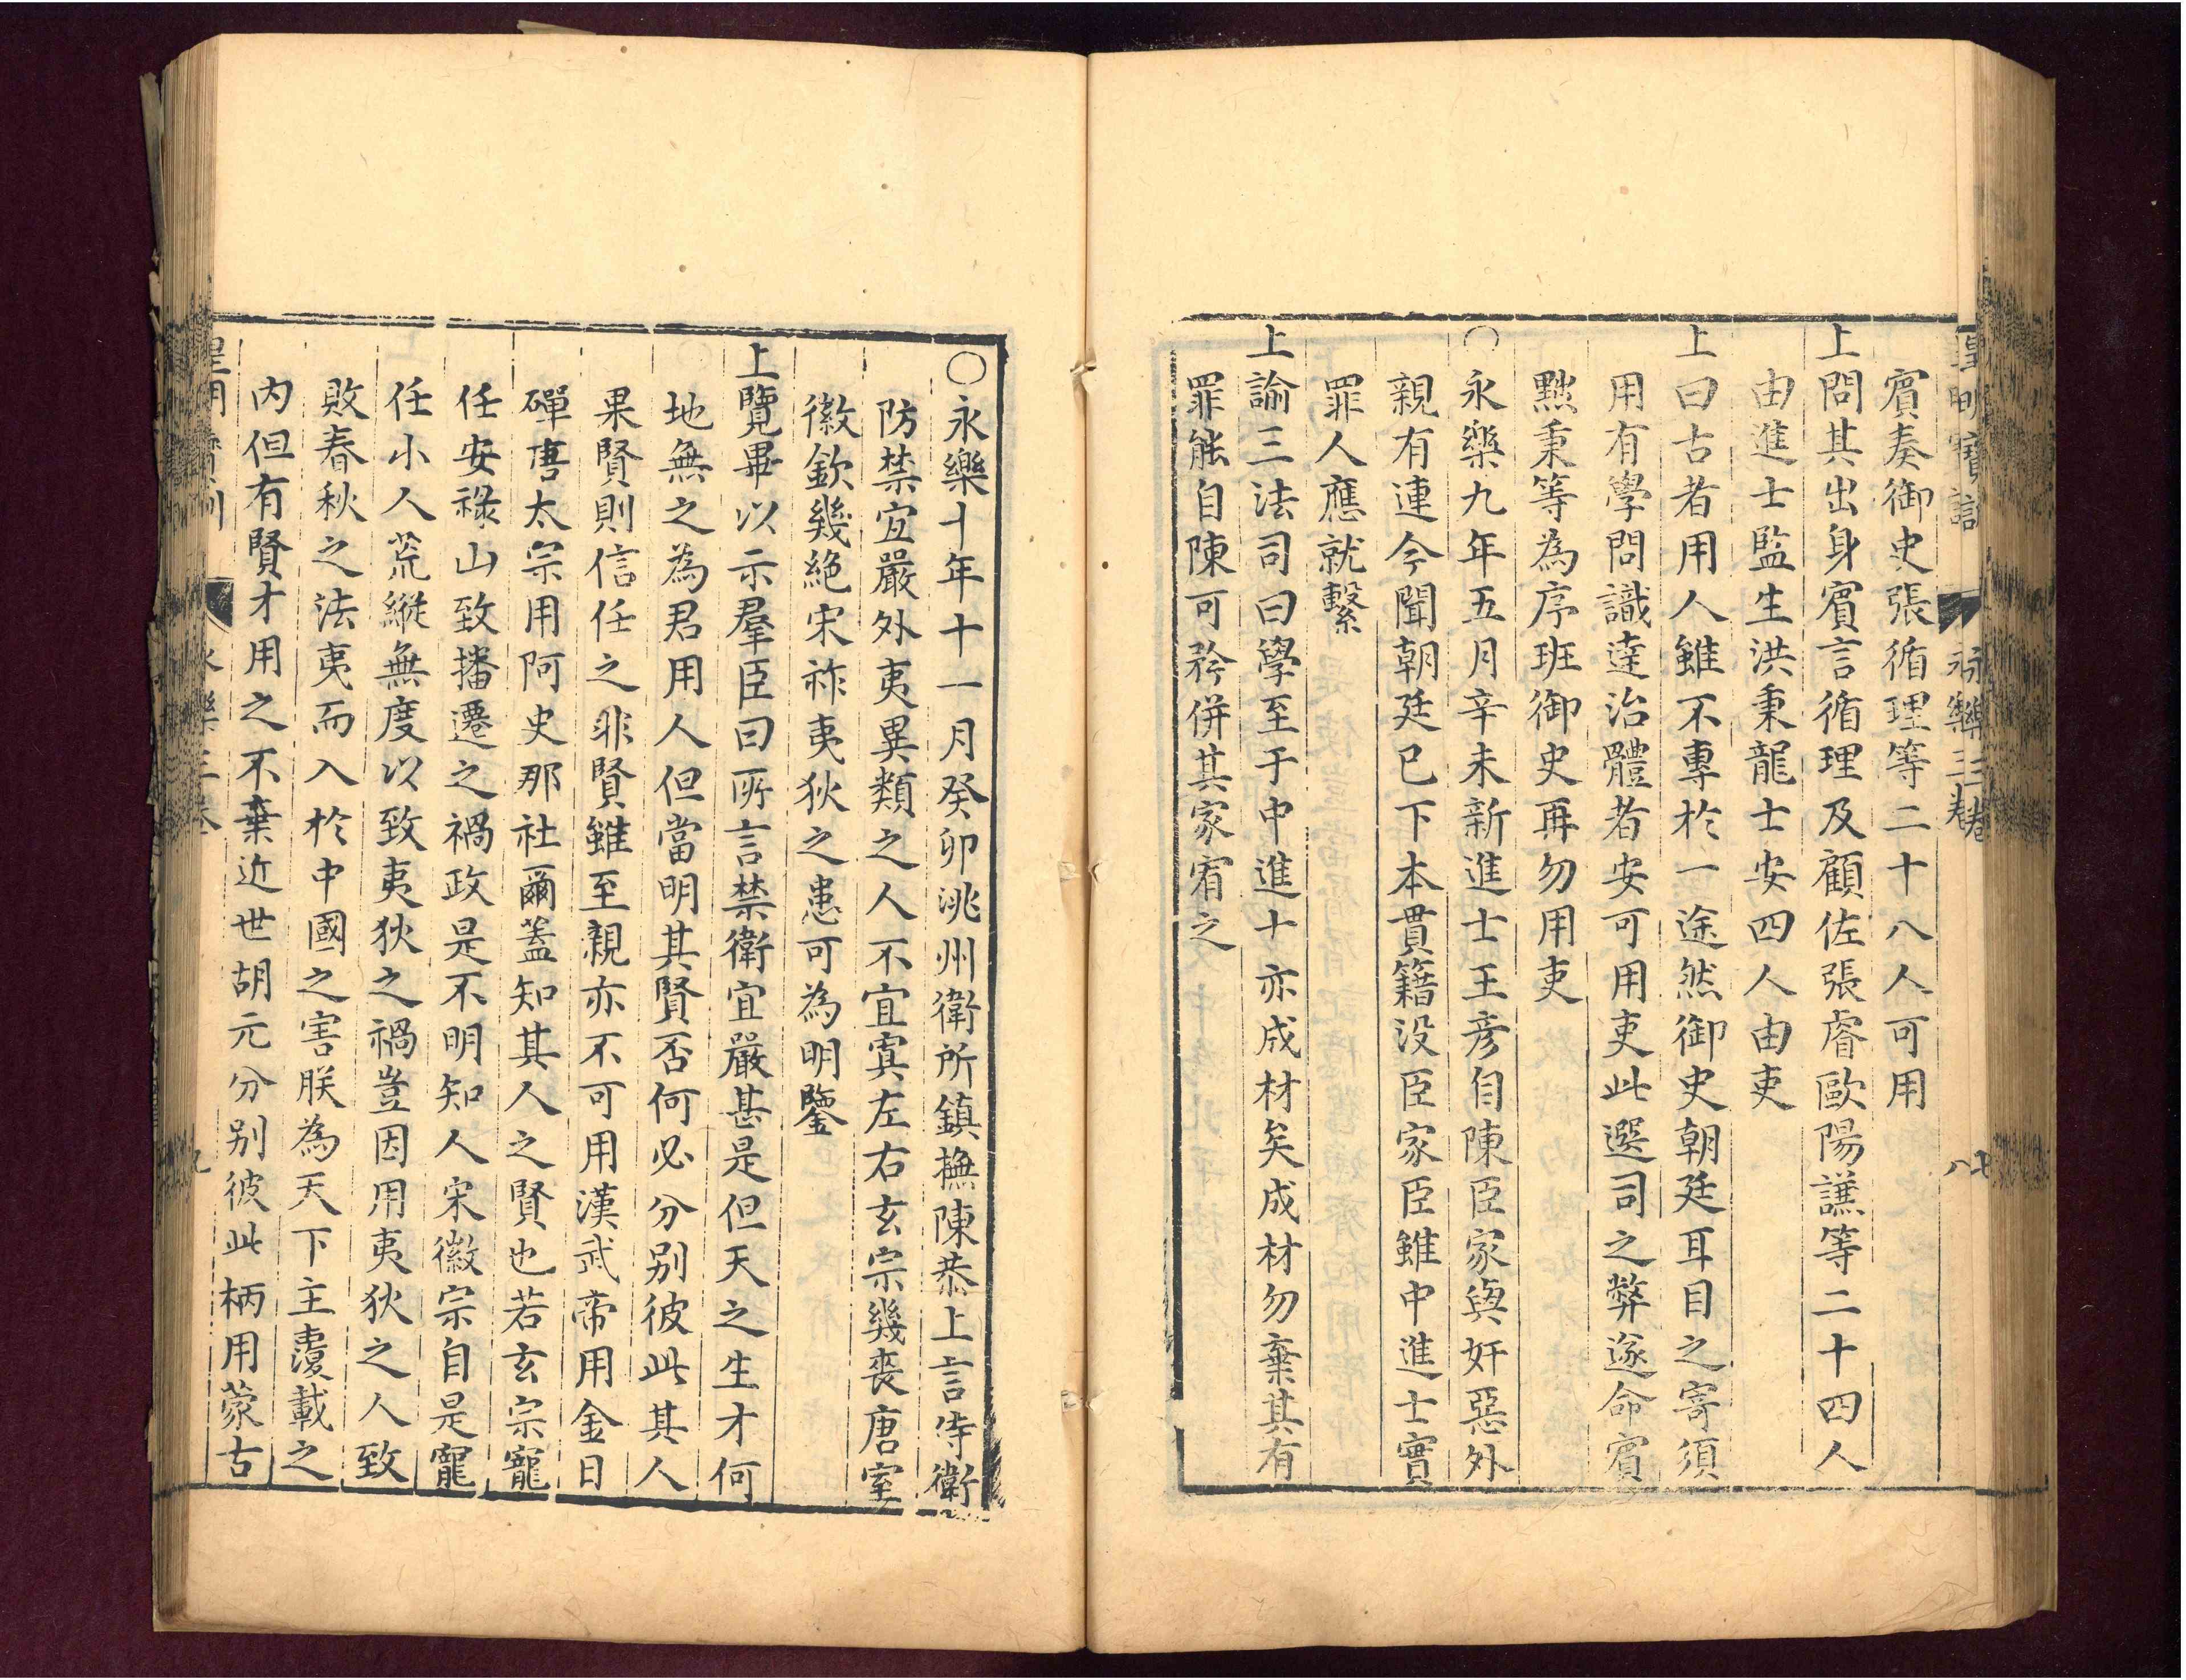 皇明寶訓　永樂三卷　八
賓奏御史張循理等二十八人可用
上問其出身賓言循理及顧佐張睿歐陽謙等二十四人
由進士監生洪秉龍士安四人由吏
上曰古者用人雖不專於一途然御史朝廷耳目之寄須
用有學問識達治體者安可用吏此選司之弊遂命賓
黜秉等為序班御史再勿用吏
○永樂九年五月辛未新進士王彥自陳臣家與奸惡外
親有連今聞朝廷已下本貫籍沒臣家臣雖中進士實
罪人應就繫
上諭三法司曰學至于中進士亦成材矣成材勿棄其有
罪能自陳可矜併其家宥之
○永樂十年十一月癸卯洮州衛所鎮撫陳恭上言侍衛
防禁宜嚴外夷異類之人不宜寘左右玄宗幾喪唐室
徽欽幾絕宋祚夷狄之患可為明鑒
上覽畢以示羣臣曰所言禁衛宜嚴甚是但天之生才何
地無之為君用人但當明其賢否何必分別彼此其人
果賢則信任之非賢雖至親亦不可用漢武帝用金日
磾唐太宗用阿史那社爾蓋知其人之賢也若玄宗寵
任安祿山致播遷之禍政是不明知人宋徽宗自是寵
任小人荒縱無度以致夷狄之禍豈因用夷狄之人致
敗春秋之法夷而入於中國之害朕為天下主覆載之
內但有賢才用之不棄近世胡元分別彼此柄用蒙古
皇明寶訓　永樂三卷　九